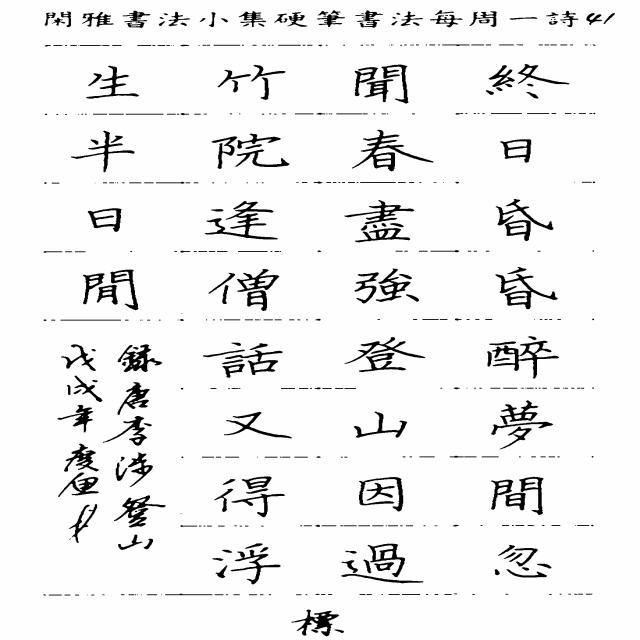 閑雅書法小集硬筆書法每周一詩41
終日昏昏醉夢間忽
聞春盡強登山因過
竹院逢僧話又得浮
生半日閒
錄唐李涉登山
戊戌年
標